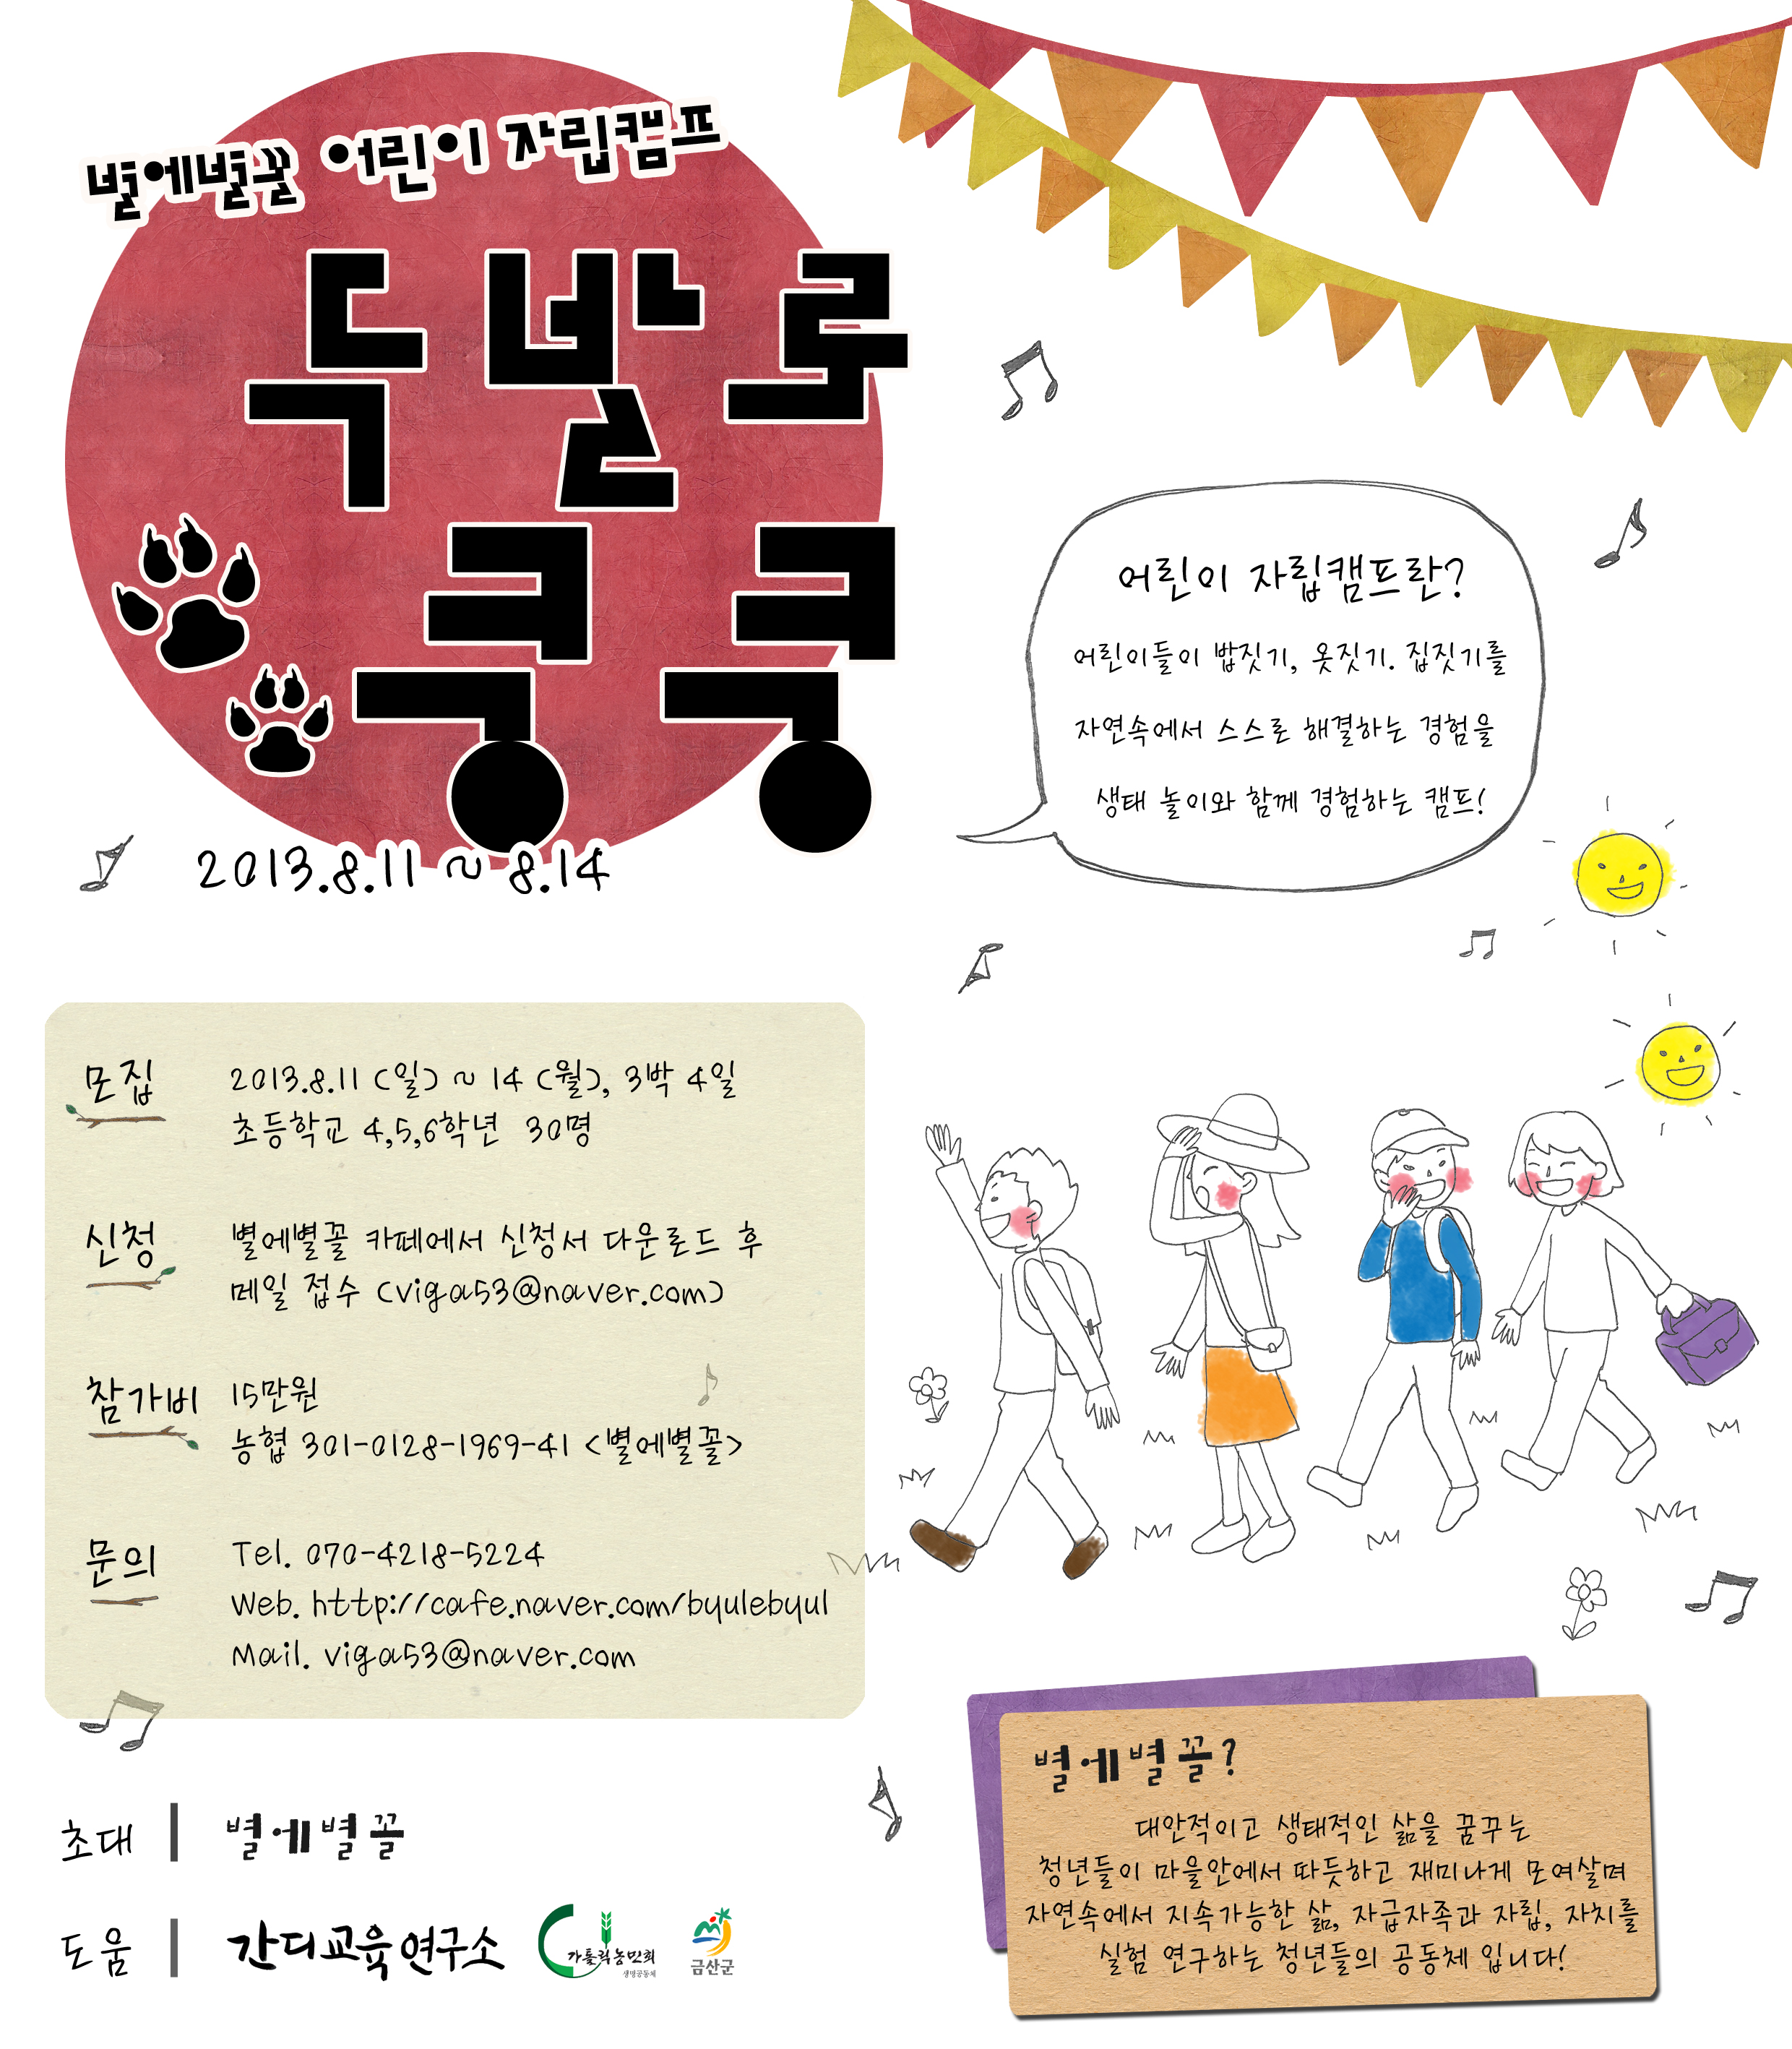 별에별꼴 어린이 자립캠프
두발로
쿵쿵
2013.8.11 ~ 8.14
어린이 자립캠프란?
어린이들이 밥짓기, 옷짓기. 집짓기를
자연속에서 스스로 해결하는 경험을
생태 놀이와 함께 경험하는 캠프!
모집
2013.8.11 (일) ~ 14 (월), 3박 4일
초등학교 4,5,6학년 30명
신청
별에별꼴 카페에서 신청서 다운로드 후
메일 접수 (viga53@naver.com)
참가비
15만원
농협 301-0128-1969-41 <별에별꼴>
문의
Tel. 070-4218-5224
Web. http://cafe.naver.com/byulebyul
Mail. viga53@naver.com
초대 | 별에별꼴
도움 | 간디교육연구소 가톨릭농민회 생명공동체 금산군
별에별꼴?
대안적이고 생태적인 삶을 꿈꾸는
청년들이 마을안에서 따듯하고 재미나게 모여살며
자연속에서 지속가능한 삶, 자급자족과 자립, 자치를
실험 연구하는 청년들의 공동체 입니다!